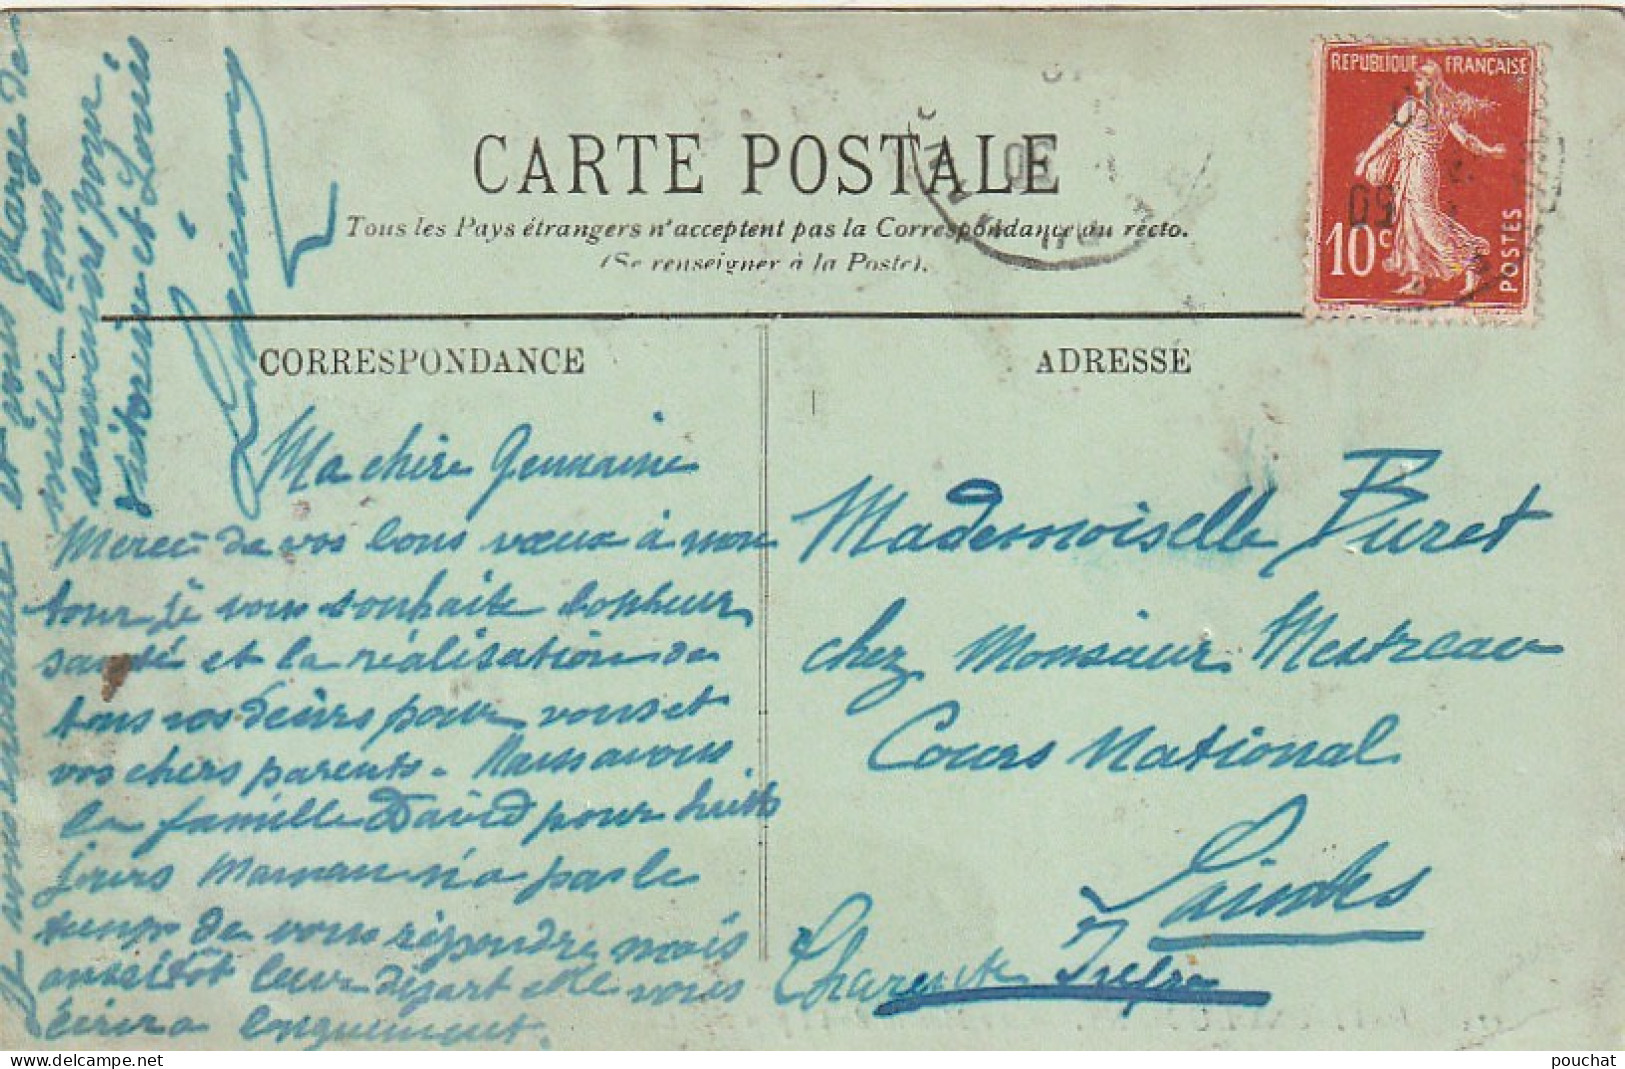 CARTE POSTALE
Tous les Pays étrangers n'acceptent pas la Correspondance au recto.
(Se renseigner à la Poste).
REPUBLIQUE FRANÇAISE
10c POSTES
CORRESPONDANCE
ADRESSE
Ma chère Germaine
Merci de vos bons vœux à mon
tour je vous souhaite bonheur
santé et la réalisation de
tous vos désirs pour vous et
vos chers parents. Nous avons
la famille David pour huit
jours Maman n'a pas le
temps de vous répondre mais
aussitôt leur départ elle vous
écrira longuement.
Je vous embrasse et vous charge de
mille bons
souvenirs pour
Victorine et Louis
Germaine
Mademoiselle Buret
chez Monsieur Mestreau
Cours National
Saintes
Charente Infre
pouchat